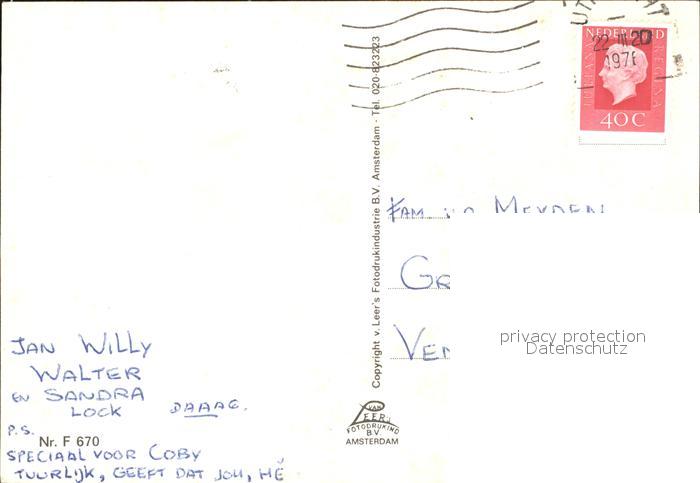 UTRECHT
22 III 20
1976
NEDERLAND
JULIANA REGINA
40 C
Copyright v. Leer's Fotodrukindustrie B.V. Amsterdam - Tel. 020-823223
FAM
privacy protection
Datenschutz
JAN WILLY
WALTER
EN SANDRA
LOCK DAAAG.
P.S.
Nr. F 670
SPECIAAL VOOR COBY
TUURLIJK, GEEFT DAT JOH, HÈ
VAN
LEER'S
FOTODRUKIND
B.V.
AMSTERDAM